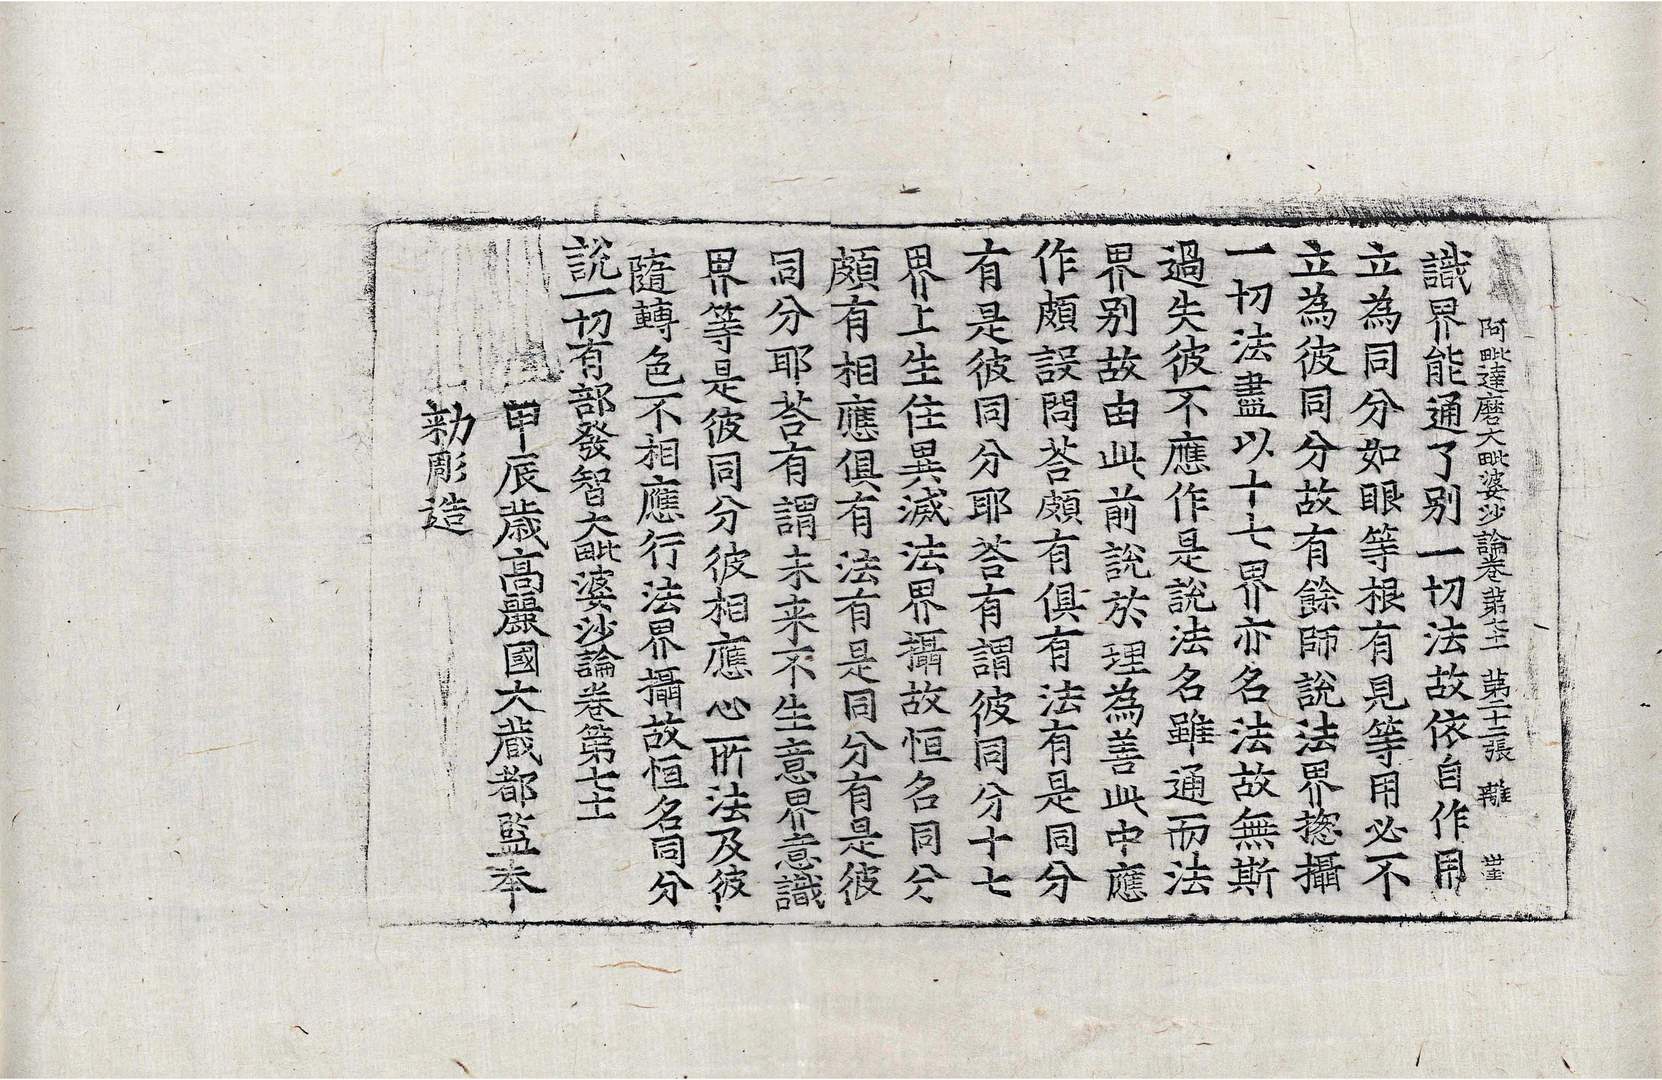 阿毗達磨大毗婆沙論卷第七十一 第二十三張 離
識界能通了別一切法故依自作用
立為同分如眼等根有見等用必不
立為彼同分故有餘師說法界揔攝
一切法盡以十七界亦名法故無斯
過失彼不應作是說法名雖通而法
界別故由此前說於理為善此中應
作頗設問荅頗有俱有法有是同分
有是彼同分耶荅有謂彼同分十七
界上生住異滅法界攝故恒名同分
頗有相應俱有法有是同分有是彼
同分耶荅有謂未来不生意界意識
界等是彼同分彼相應心所法及彼
隨轉色不相應行法界攝故恒名同分
說一切有部發智大毗婆沙論卷第七十一
甲辰歲高麗國大藏都監奉
勑彫造